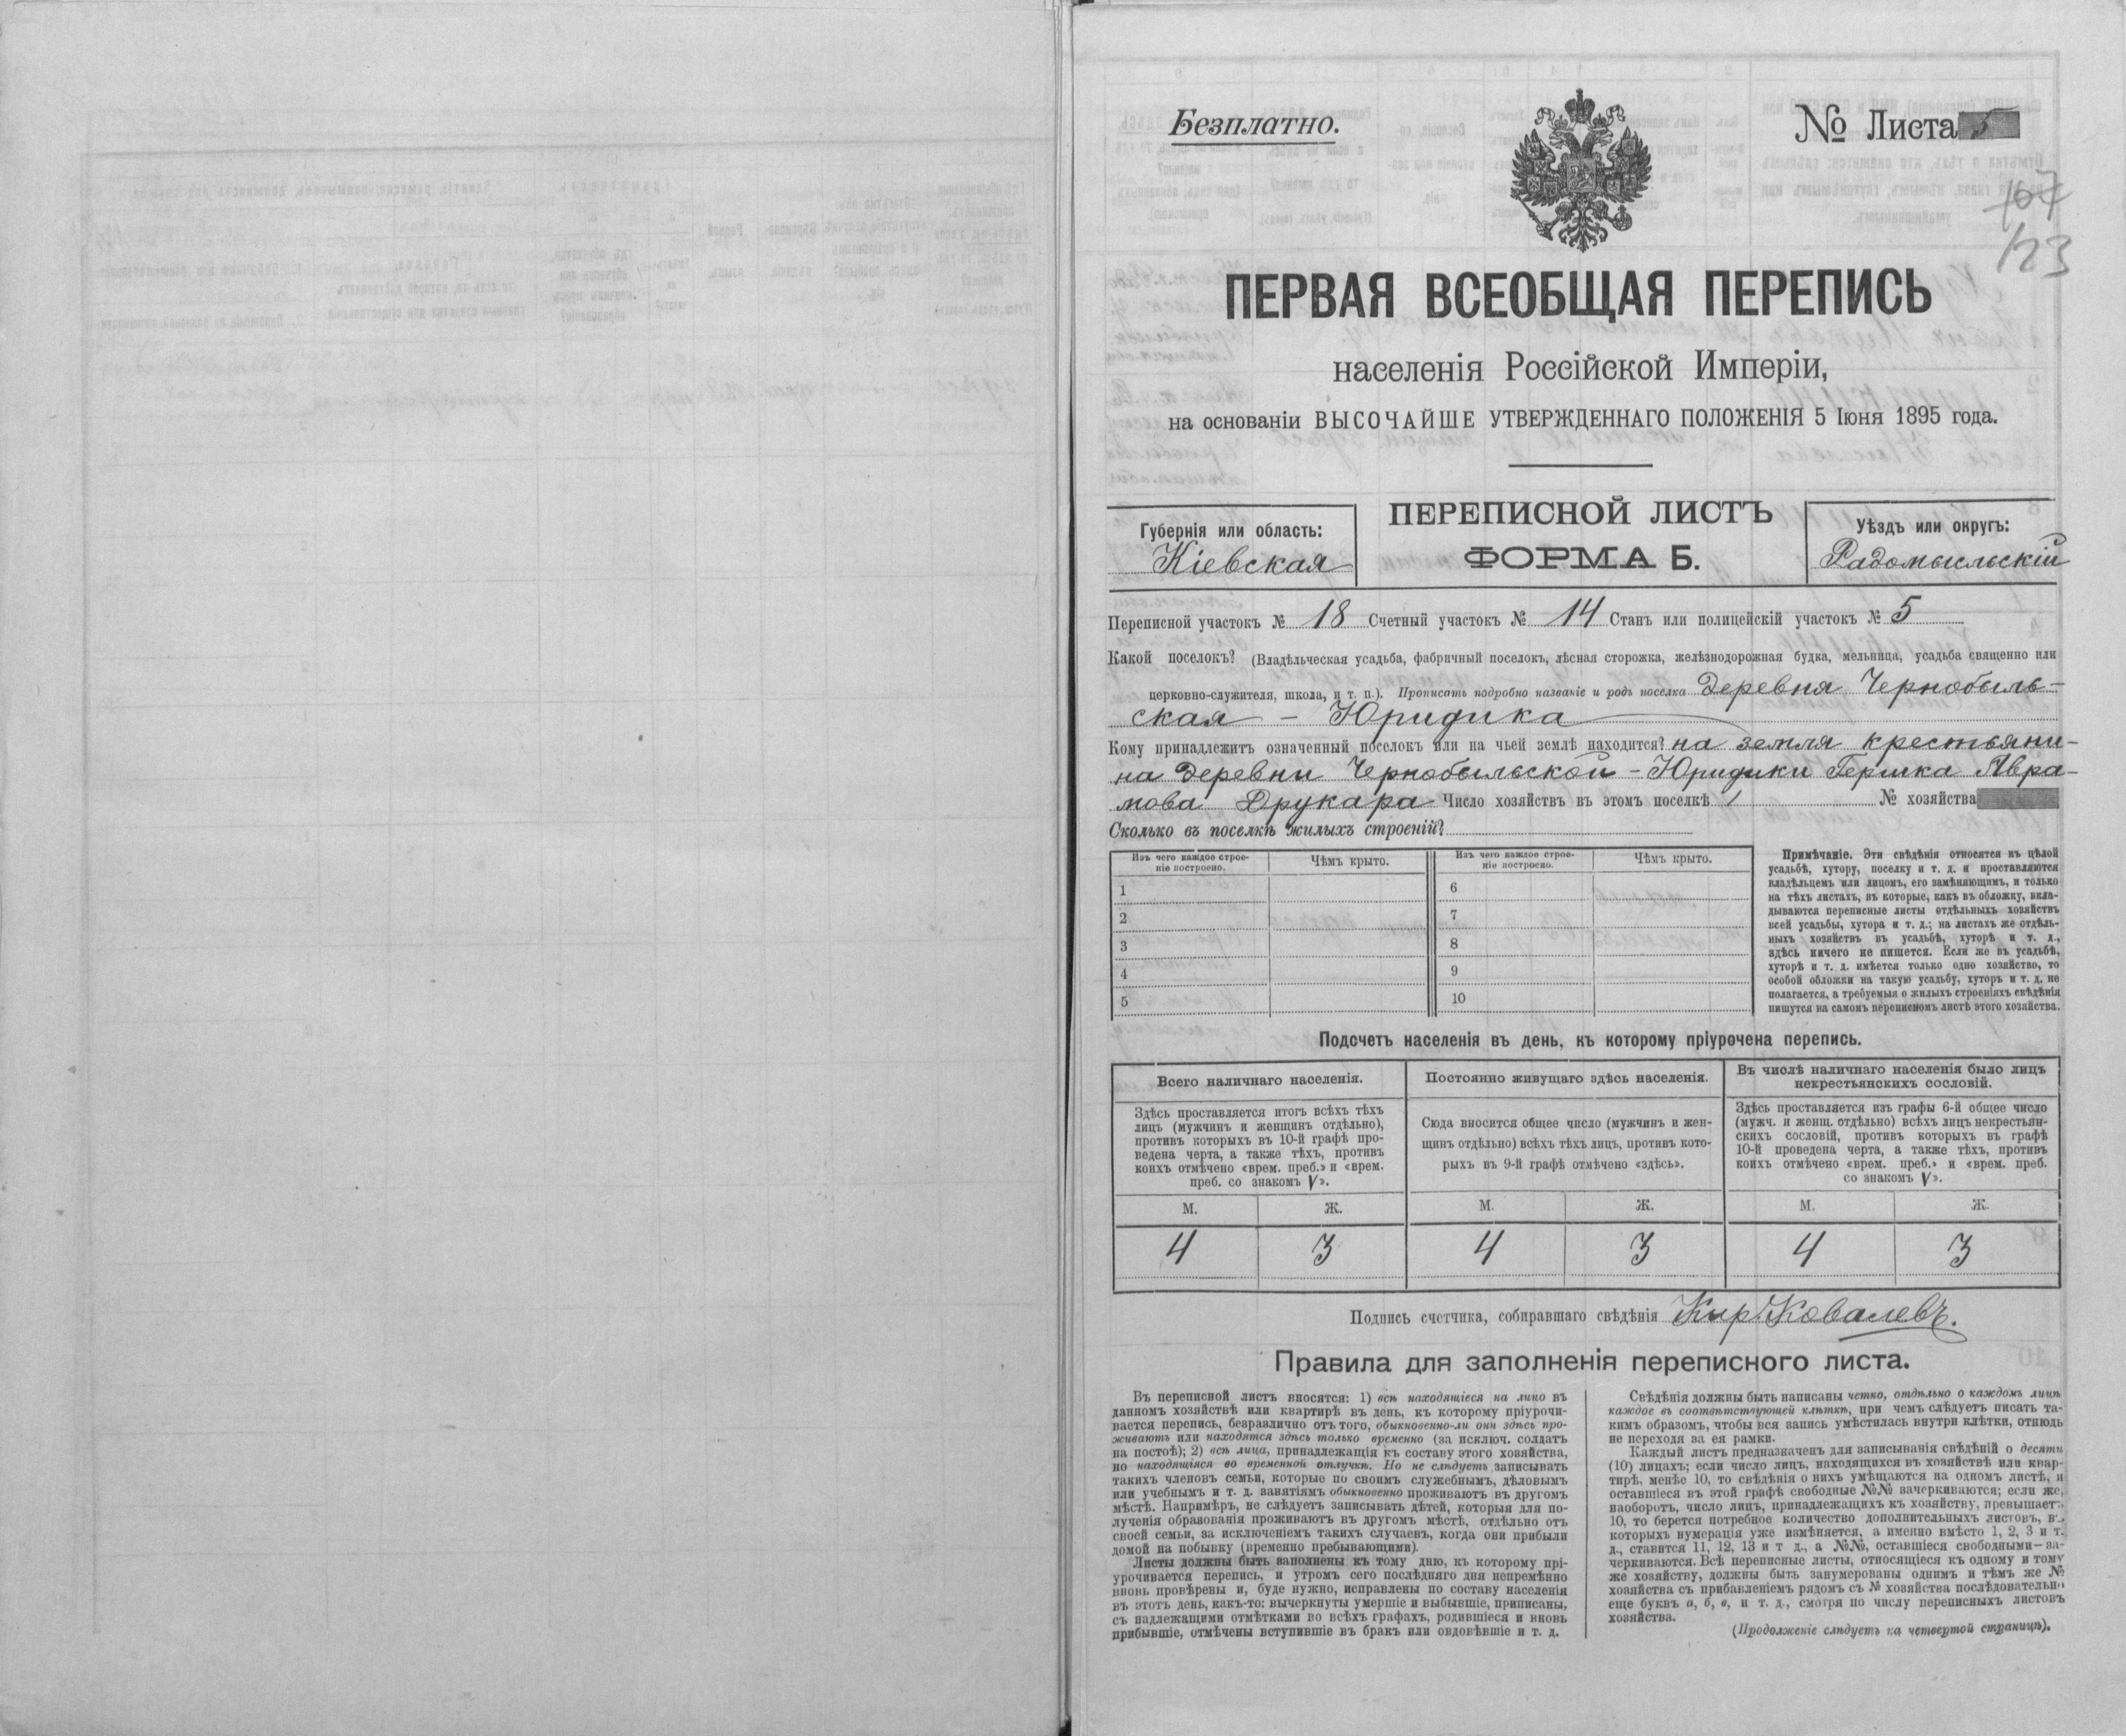 Безплатно.
№ Листа 5
107
123
ПЕРВАЯ ВСЕОБЩАЯ ПЕРЕПИСЬ
населенія Россійской Имперіи,
на основаніи ВЫСОЧАЙШЕ УТВЕРЖДЕННАГО ПОЛОЖЕНІЯ 5 Іюня 1895 года.
Губернія или область:
Кіевская
ПЕРЕПИСНОЙ ЛИСТЪ
ФОРМА Б.
Уѣздъ или округъ:
Радомысльскій
Переписной участокъ № 18 Счетный участокъ № 14 Станъ или полицейскій участокъ № 5
Какой поселокъ? (Владѣльческая усадьба, фабричный поселокъ, лѣсная сторожка, желѣзнодорожная будка, мельница, усадьба священно или
церковно-служителя, школа, и т. п.). Прописать подробно названіе и родъ поселка Деревня Чернобыль-
ская – Юридика
Кому принадлежитъ означенный поселокъ или на чьей землѣ находится? на земля крестьяни-
на деревни Чернобыльской – Юридики Гершка Авра-
мова Друкара Число хозяйствъ въ этомъ поселкѣ 1 № хозяйства
Сколько въ поселкѣ жилыхъ строеній?
Изъ чего каждое строе-
ніе построено.
Чѣмъ крыто.
Изъ чего каждое строе-
ніе построено.
Чѣмъ крыто.
1 6
2 7
3 8
4 9
5 10
Примѣчаніе. Эти свѣдѣнія относятся къ цѣлой
усадьбѣ, хутору, поселку и т. д. и проставляются
владѣльцемъ или лицомъ, его замѣняющимъ, и только
на тѣхъ листахъ, въ которые, какъ въ обложку, вкла-
дываются переписные листы отдѣльныхъ хозяйствъ
всей усадьбы, хутора и т. д.; на листахъ же отдѣль-
ныхъ хозяйствъ въ усадьбѣ, хуторѣ и т. д.,
здѣсь ничего не пишется. Если же въ усадьбѣ,
хуторѣ и т. д. имѣется только одно хозяйство, то
особой обложки на такую усадьбу, хуторъ и т. д. не
полагается, а требуемыя о жилыхъ строеніяхъ свѣдѣнія
пишутся на самомъ переписномъ листѣ этого хозяйства.
Подсчетъ населенія въ день, къ которому пріурочена перепись.
Всего наличнаго населенія.
Здѣсь проставляется итогъ всѣхъ тѣхъ
лицъ (мужчинъ и женщинъ отдѣльно),
противъ которыхъ въ 10-й графѣ про-
ведена черта, а также тѣхъ, противъ
коихъ отмѣчено «врем. преб.» и «врем.
преб. со знакомъ V».
Постоянно живущаго здѣсь населенія.
Сюда вносится общее число (мужчинъ и жен-
щинъ отдѣльно) всѣхъ тѣхъ лицъ, противъ кото-
рыхъ въ 9-й графѣ отмѣчено «здѣсь».
Въ числѣ наличнаго населенія было лицъ
некрестьянскихъ сословій.
Здѣсь проставляется изъ графы 6-й общее число
(мужч. и женщ. отдѣльно) всѣхъ лицъ некрестьян-
скихъ сословій, противъ которыхъ въ графѣ
10-й проведена черта, а также тѣхъ, противъ
коихъ отмѣчено «врем. преб.» и «врем. преб.
со знакомъ V».
М. Ж. М. Ж. М. Ж.
4 3 4 3 4 3
Подпись счетчика, собиравшаго свѣдѣнія Кир. Ковалевъ.
Правила для заполненія переписного листа.
Въ переписной листъ вносятся: 1) всѣ находящіеся на лицо въ
данномъ хозяйствѣ или квартирѣ въ день, къ которому пріурочи-
вается перепись, безразлично отъ того, обыкновенно-ли они здѣсь про-
живаютъ или находятся здѣсь только временно (за исключ. солдатъ
на постоѣ); 2) всѣ лица, принадлежащія къ составу этого хозяйства,
но находящіяся во временной отлучкѣ. Но не слѣдуетъ записывать
такихъ членовъ семьи, которые по своимъ служебнымъ, дѣловымъ
или учебнымъ и т. д. занятіямъ обыкновенно проживаютъ въ другомъ
мѣстѣ. Напримѣръ, не слѣдуетъ записывать дѣтей, которыя для по-
лученія образованія проживаютъ въ другомъ мѣстѣ, отдѣльно отъ
своей семьи, за исключеніемъ такихъ случаевъ, когда они прибыли
домой на побывку (временно пребывающими).
Листы должны быть заполнены къ тому дню, къ которому прі-
урочивается перепись, и утромъ сего послѣдняго дня непремѣнно
вновь провѣрены и, буде нужно, исправлены по составу населенія
въ этотъ день, какъ-то: вычеркнуты умершіе и выбывшіе, приписаны,
съ надлежащими отмѣтками во всѣхъ графахъ, родившіеся и вновь
прибывшіе, отмѣчены вступившіе въ бракъ или овдовѣвшіе и т. д.
Свѣдѣнія должны быть написаны четко, отдѣльно о каждомъ лицѣ
каждое въ соотвѣтствующей клѣткѣ, при чемъ слѣдуетъ писать та-
кимъ образомъ, чтобы вся запись умѣстилась внутри клѣтки, отнюдь
не переходя за ея рамки.
Каждый листъ предназначенъ для записыванія свѣдѣній о десяти
(10) лицахъ; если число лицъ, находящихся въ хозяйствѣ или квар-
тирѣ, менѣе 10, то свѣдѣнія о нихъ умѣщаются на одномъ листѣ, и
оставшіеся въ этой графѣ свободные №№ зачеркиваются; если же,
наоборотъ, число лицъ, принадлежащихъ къ хозяйству, превышаетъ
10, то берется потребное количество дополнительныхъ листовъ, въ
которыхъ нумерація уже измѣняется, а именно вмѣсто 1, 2, 3 и т.
д., ставится 11, 12, 13 и т д., а №№, оставшіеся свободными—за-
черкиваются. Всѣ переписные листы, относящіеся къ одному и тому
же хозяйству, должны быть занумерованы однимъ и тѣмъ же №
хозяйства съ прибавленіемъ рядомъ съ № хозяйства послѣдовательно
еще буквъ а, б, в, и т. д., смотря по числу переписныхъ листовъ
хозяйства.
(Продолженіе слѣдуетъ на четвертой страницѣ).